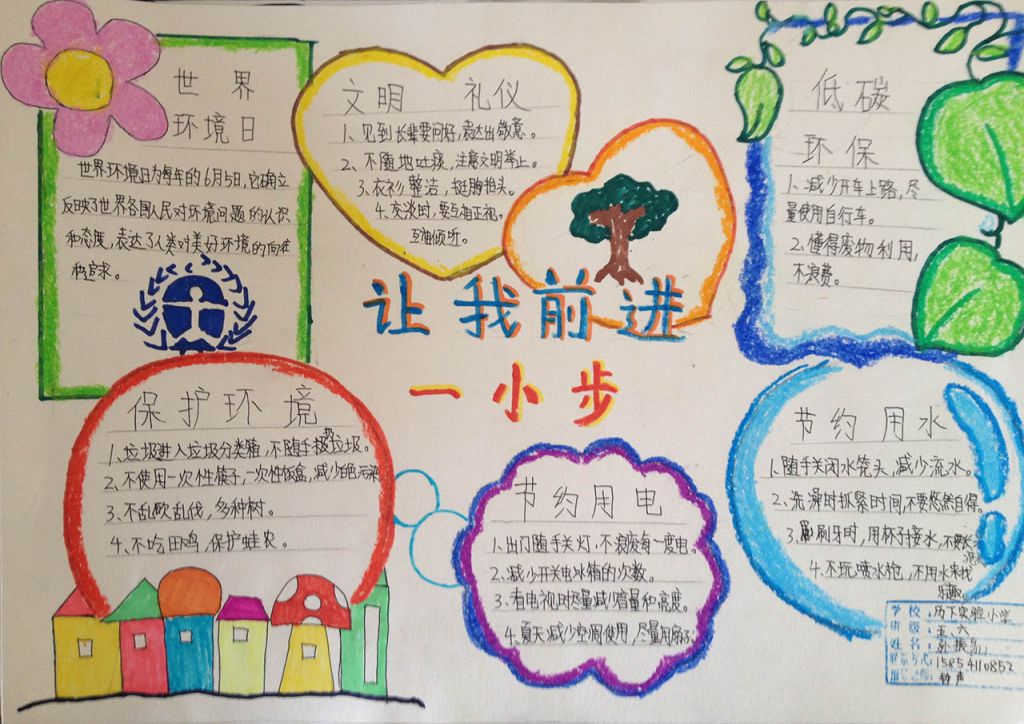 世 界
环境日
世界环境日为每年的6月5日,它确立
反映了世界各国人民对环境问题的认识
和态度,表达了人类对美好环境的向往
和追求。
文明 礼仪
1、见到长辈要问好,表达出敬意。
2、不随地吐痰,注意文明举止。
3、衣衫整洁,挺胸抬头。
4、交谈时,要互相正视。
互相倾听。
低碳
环保
1、减少开车上路,尽
量使用自行车。
2、懂得废物利用,
不浪费。
让我前进
一小步
保护环境
1、垃圾进入垃圾分类箱,不随手扔垃圾。
2、不使用一次性筷子,一次性饭盒,减少白色污染
3、不乱砍乱伐,多种树。
4、不吃田鸡,保护蛙农。
节约用电
1、出门随手关灯,不浪费每一度电。
2、减少开关电冰箱的次数。
3、看电视时尽量减少音量和亮度。
4、夏天减少空调使用,尽量用扇子
节约用水
1、随手关闭水龙头,减少流水。
2、洗澡时抓紧时间,不要悠然自得。
3、刷牙时,用杯子接水,不要长
4、不玩喷水枪,不用水来找
乐趣。
学校:历下实验小学
班级:五、六
姓名:苏振
联系方式:15854110852
指导老师:钟声